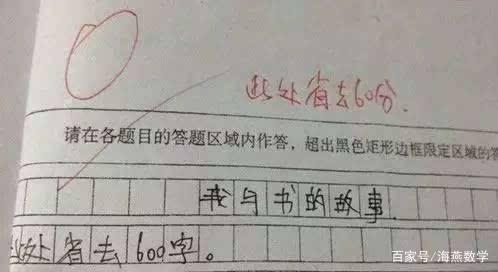 此处省去60分.
请在各题目的答题区域内作答，超出黑色矩形边框限定区域的答
我与书的故事.
此处省去600字。
百家号/海燕数学